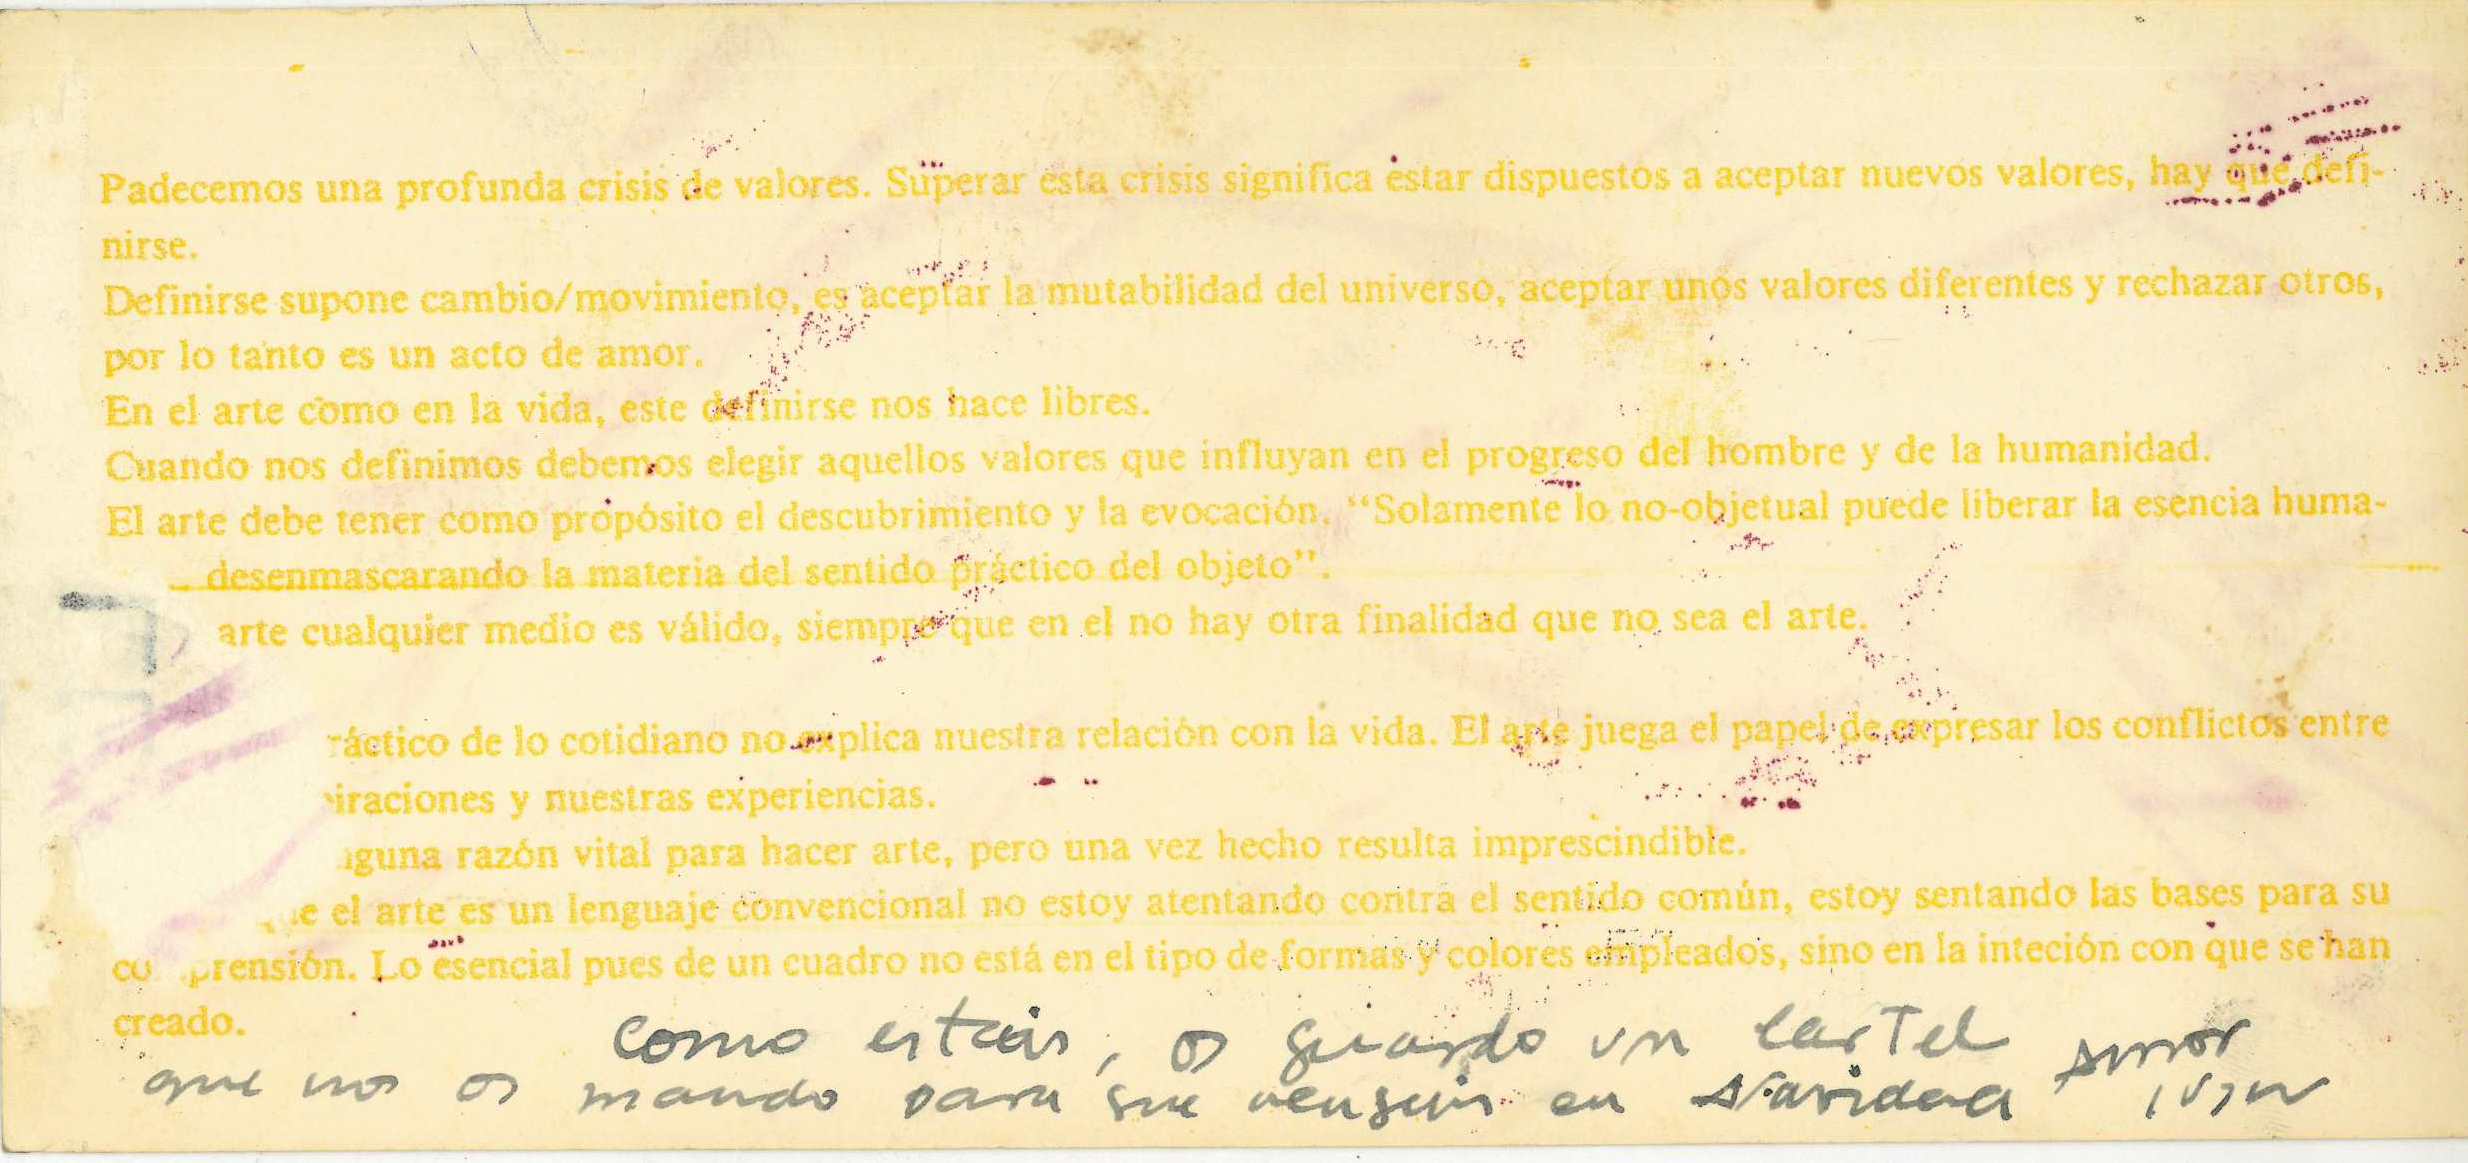 Padecemos una profunda crisis de valores. Superar esta crisis significa estar dispuestos a aceptar nuevos valores, hay que defi-
nirse.
Definirse supone cambio/movimiento, es aceptar la mutabilidad del universo, aceptar unos valores diferentes y rechazar otros,
por lo tanto es un acto de amor.
En el arte como en la vida, este definirse nos hace libres.
Cuando nos definimos debemos elegir aquellos valores que influyan en el progreso del hombre y de la humanidad.
El arte debe tener como propósito el descubrimiento y la evocación. “Solamente lo no-objetual puede liberar la esencia huma-
desenmascarando la materia del sentido práctico del objeto”.
arte cualquier medio es válido, siempre que en el no hay otra finalidad que no sea el arte.
ráctico de lo cotidiano no explica nuestra relación con la vida. El arte juega el papel de expresar los conflictos entre
iraciones y nuestras experiencias.
guna razón vital para hacer arte, pero una vez hecho resulta imprescindible.
e el arte es un lenguaje convencional no estoy atentando contra el sentido común, estoy sentando las bases para su
prensión. Lo esencial pues de un cuadro no está en el tipo de formas y colores empleados, sino en la inteción con que se han
creado.
como estáis, os guardo un cartel
que nos os mando para que vengáis en Navidad Amor